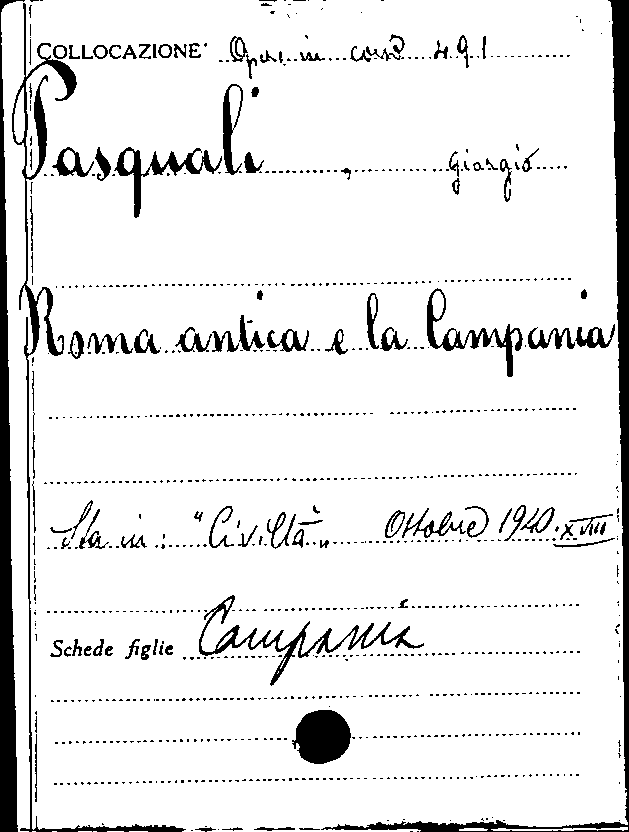 COLLOCAZIONE Opere in corso 491
Pasquali, Giorgio
Roma antica e la Campania
Sta in: "Civiltà„ Ottobre 1940.XVIII
Schede figlie Campania